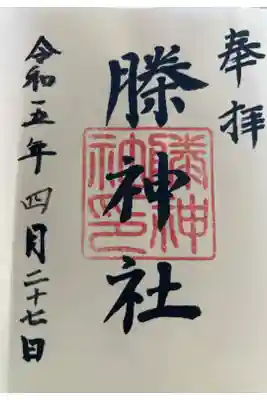 奉拝
滕神社
滕神社印
令和五年四月二十七日